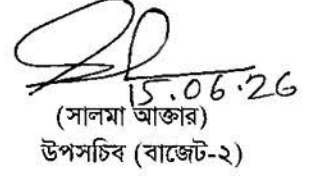 15.06.26
(সালমা আক্তার)
উপসচিব (বাজেট-২)